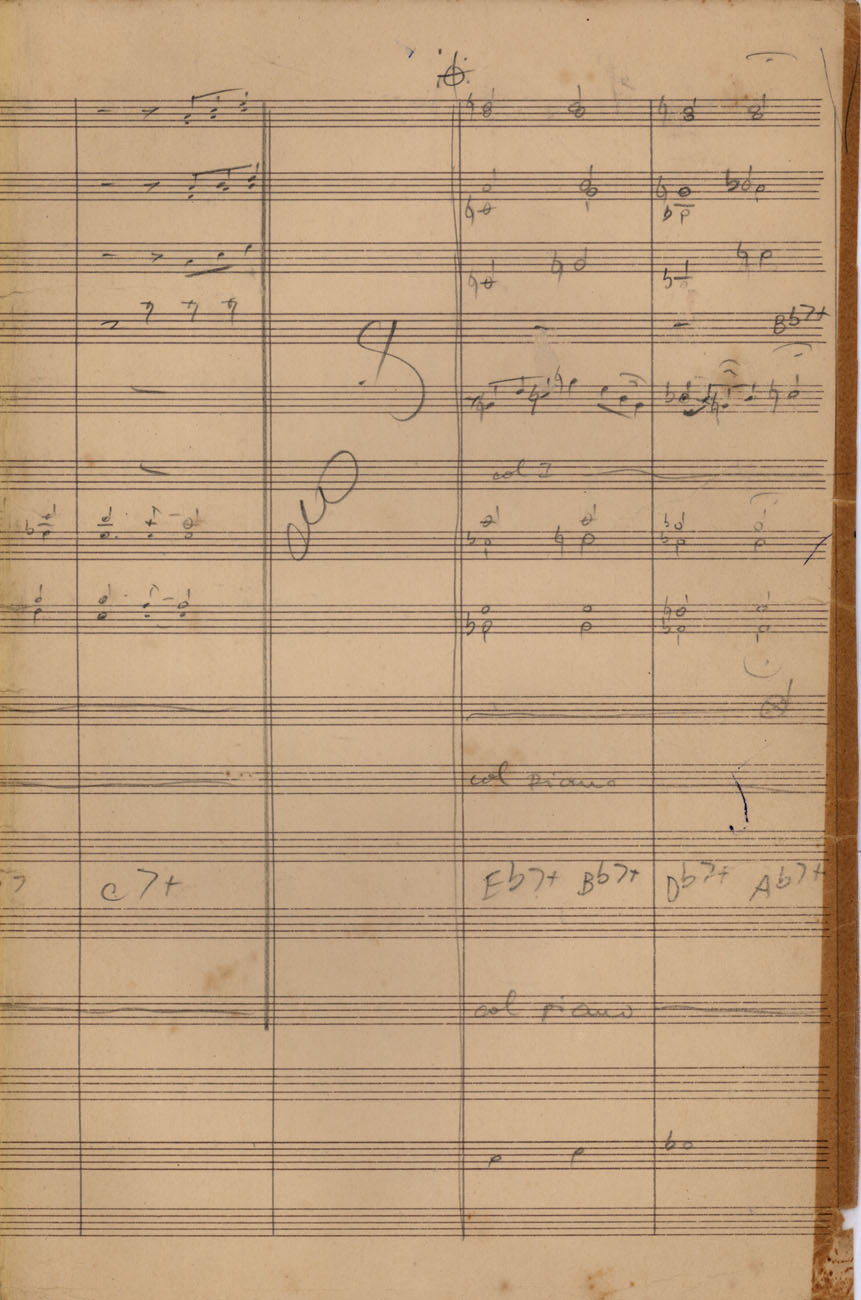 Bb7+
col I
col piano
7 C7+ Eb7+ Bb7+ Db7+ Ab7+
col piano